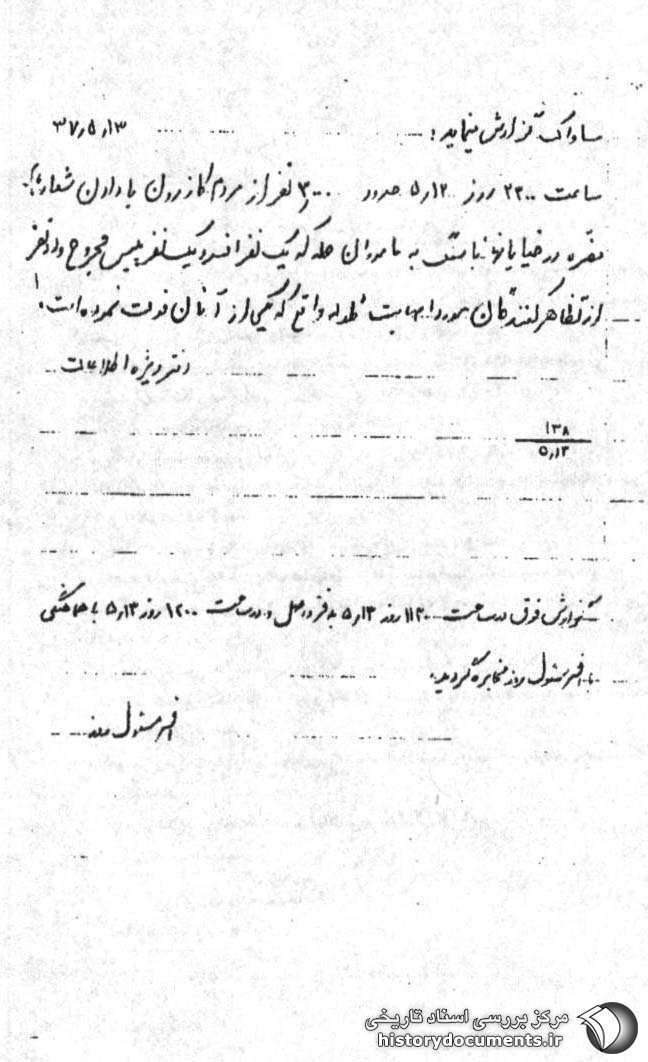 ساواک گزارش مینماید: ۳۷٫۵٫۱۳
ساعت ۲۲۰۰ روز ۵٫۱۲ حدود ۳٫۰۰۰ نفر از مردم کازرون با دادن شعارهای
مضره در خیابانها با سنگ به ماموران حمله که یک نفر افسر و یک نفر پلیس مجروح و دو نفر
از تظاهرکنندگان مورد اصابت گلوله واقع که یکی از آنان فوت نموده است.
دفتر ویژه اطلاعات
۱۳۸
۵٫۱۳
گزارش فوق در ساعت ۱۱۳۰ روز ۵٫۱۳ و در ساعت ۱۲۰۰ روز ۵٫۱۳ با هماهنگی
با افسر مسئول مخابره گردید.
افسر مسئول
مرکز بررسی اسناد تاریخی
historydocuments.ir